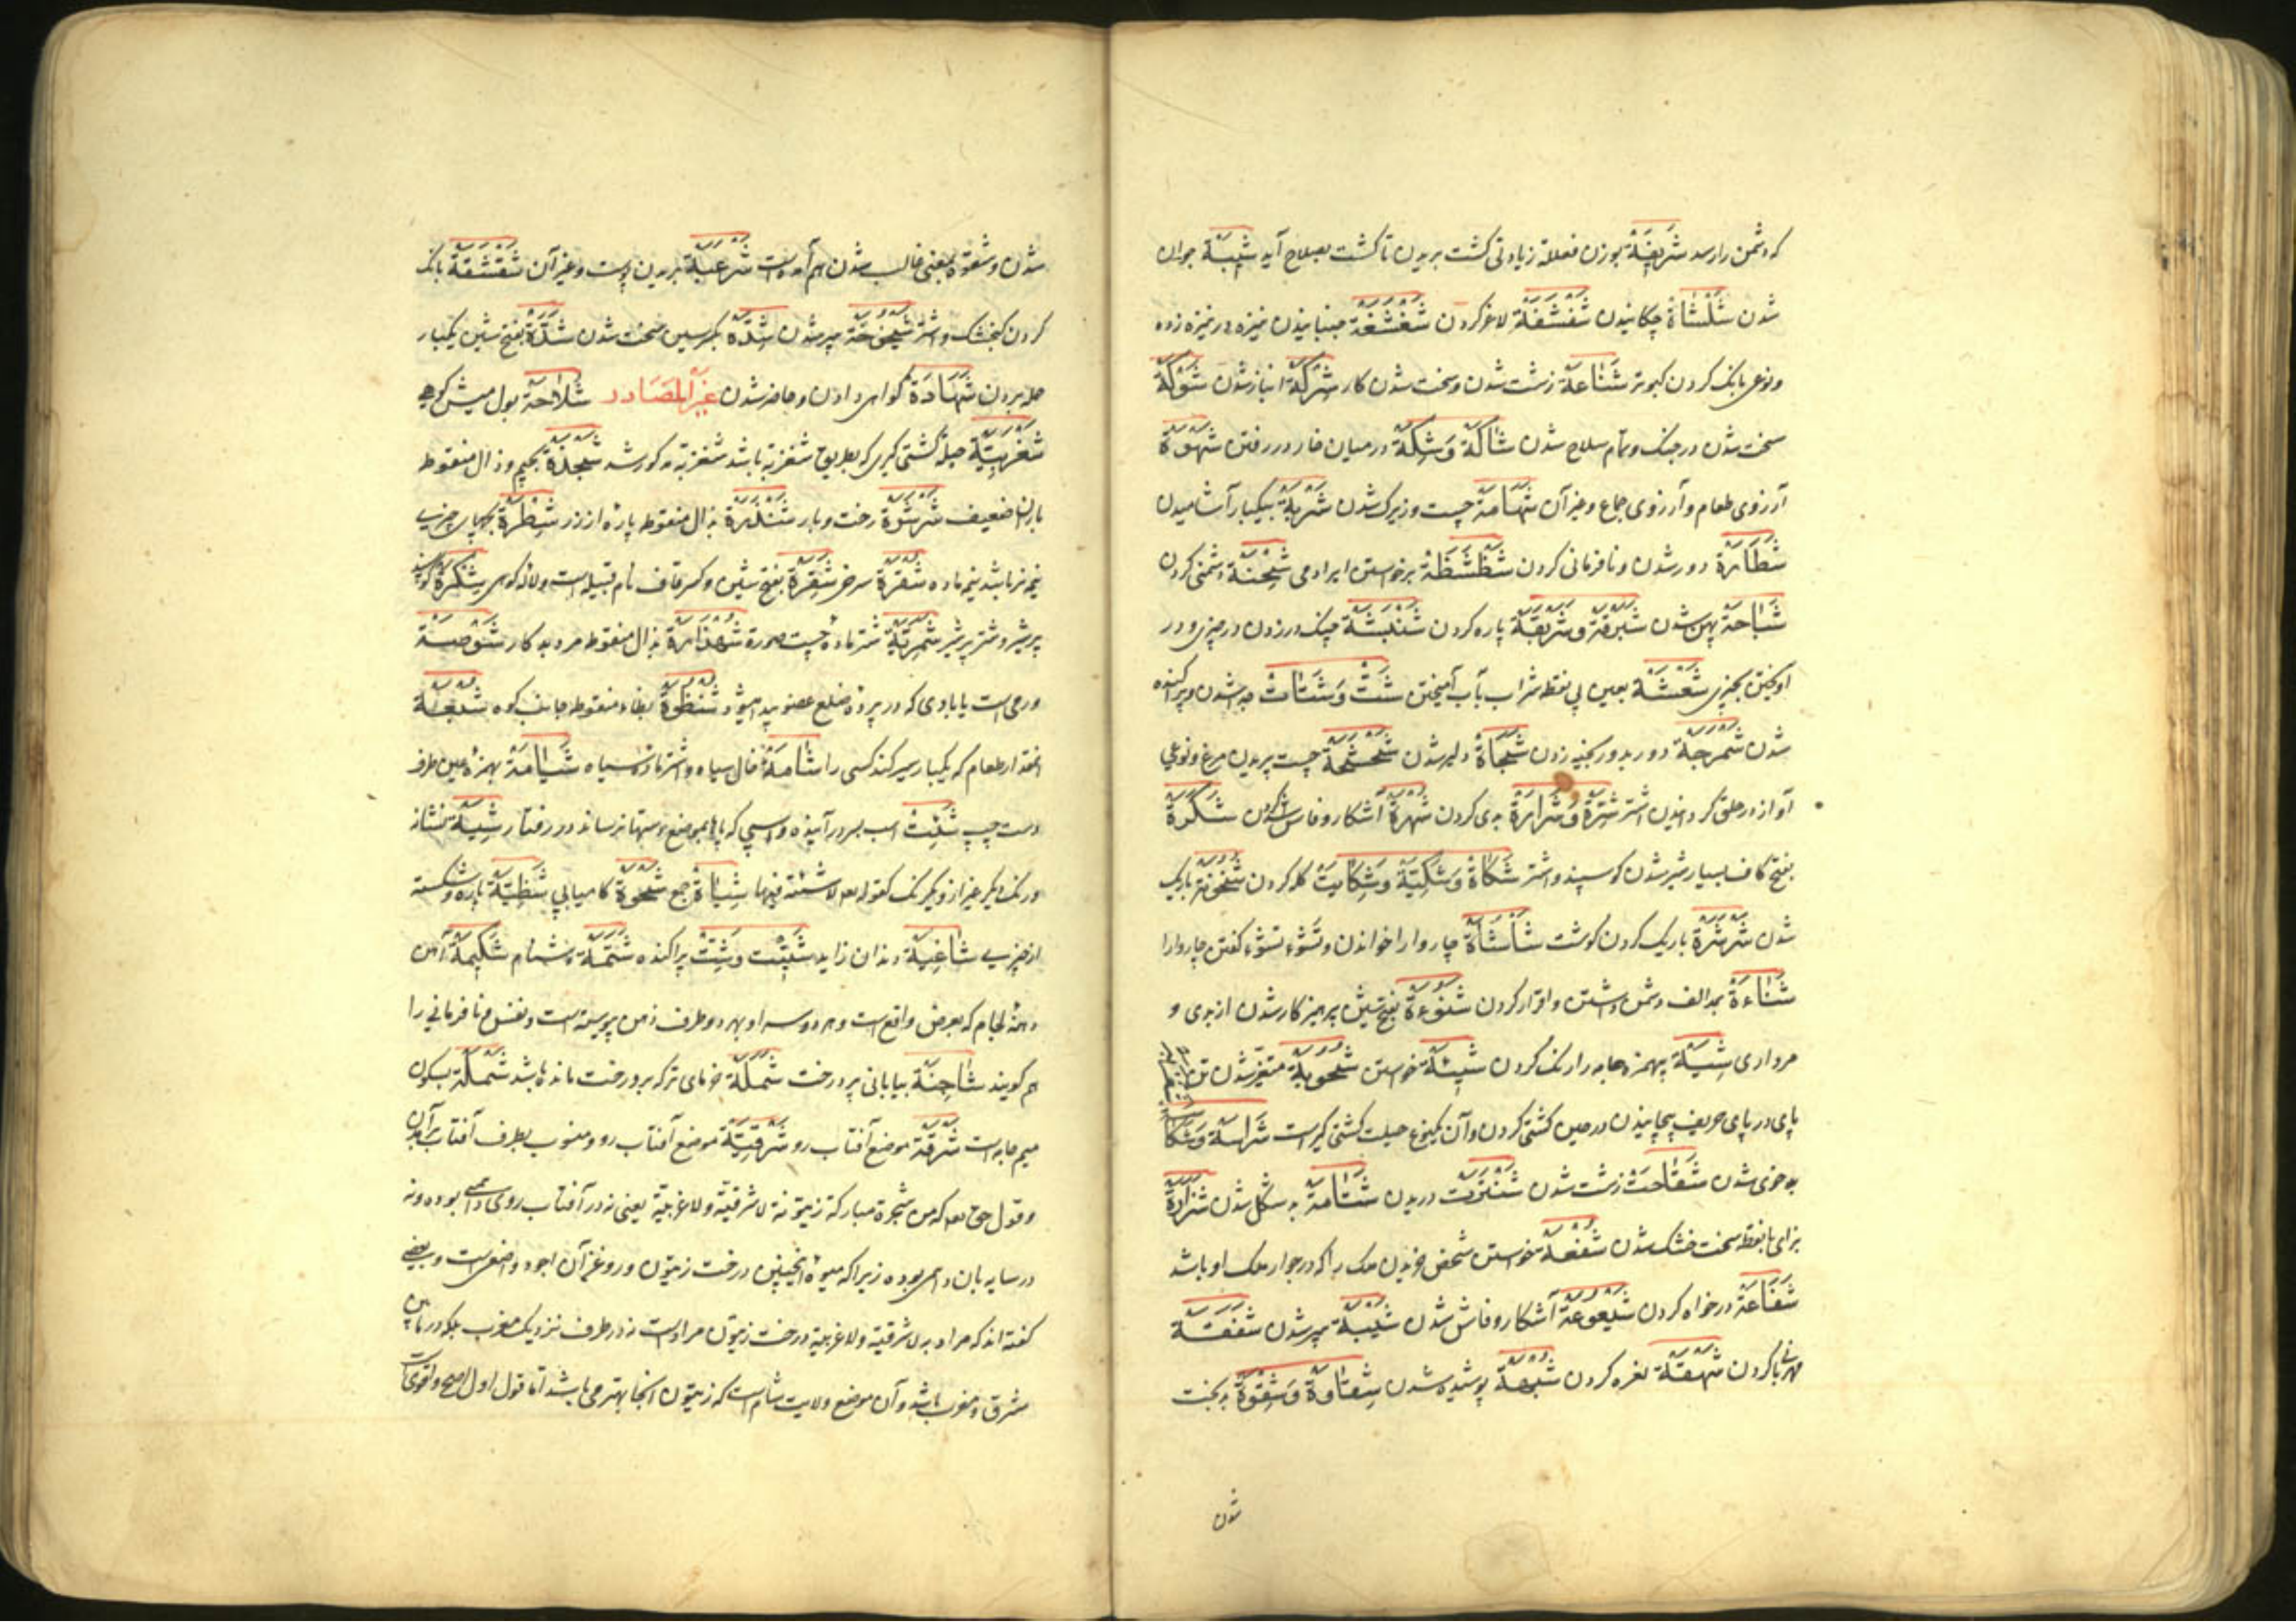 که دشمن را رسد شَرْیَفَةٌ بوزن فعللة زیادتی کشت بریدن تا کشت بصلاح آید شَبِیبَة جوان
شدن شَلْشَاة چکانیدن شَفْشَفَة لاغر کردن شَغْشَغَة جنبانیدن نیزه در نیزه زده
ونوعی بانک کردن کبوتر شَنَاعَة زشت شدن وسخت شدن کار شِرْکَة انباز شدن شَوْکَة
سخت شدن در جنک وتمام سلاح شدن شَاکَة وَشِکَة در میان خار در رفتن شَهْوَة
آرزوی طعام وآرزوی جماع وغیر آن شَهَامَة چست وزیرک شدن شَرْبَة بیکبار آشامیدن
شَطَارَة دور شدن ونافرمانی کردن شَظْشَظَة برخواستن ایر ادمی شِحْنَة دشمنی کردن
شَبَاحَة پهن شدن شَبْرَقَة وشَرْبَقَة پاره کردن شَنْبَشَة چنک در زدن در چیزی ودر
اویختن بچیزی شَعْشَعَة بعین بی نقطه شراب بآب آمیختن شَتّ وَشَتَات جدا شدن وپراکنده
شدن شَمْرَجَة دور بدور بخیه زدن شَجَاة دلیر شدن شَحْشَحَة چست پریدن مرغ ونوعی
آواز در حلق کردانیدن اشتر شِرَّة وَشَرَارَة بدی کردن شُهْرَة آشکار وفاش کردن شَکْرَة
بفتح کاف بسیار شیر شدن کوسپند واشتر شَکَاة وَشَکِیَّة وَشِکَایَت کله کردن شُخُونَة باریک
شدن شَرْشَرَة باریک کردن کوشت شَأْشَأَة چاروا را خواندن وتَشُوء تشوء کفتن چاروا را
شَنَاءَة بمد الف دشمن داشتن واقرار کردن شَنُوءَة بفتح شین پرهیز کار شدن از بدی و
مرداری شِیَة بهمزه جامه را رنک کردن شِیئَة خواستن شُحُوبَة متغیر شدن تن
پای در پای حریف پیچانیدن در حین کشتی کردن وآن یکنوع حیلت کشتی کیر است شَرَاسَة وَشَکَا
بدخوی شدن شَقَاحَت زشت شدن شَنْتَرَت دریدن شَتَامَة بد شکل شدن شَزَازَة
بزای با نقطه سخت خشک شدن شُفْعَة خواستن شخص خریدن ملک را که در جوار ملک او باشد
شَفَاعَة درخواه کردن شُیُوعَة آشکار وفاش شدن شَیْبَة پیر شدن شَفَقَة
مهربانی کردن شَهْقَة نعره کردن شُبْهَة پوشیده شدن شِقَاوَة وَشِقْوَة بدبخت
شدن
شدن وشقوة بمعنی غالب شدن هم آمده است شَرْعَبَة بریدن پوست وغیر آن شَقْشَقَة بانک
کردن کنجشک واشتر شَیْخُوخَة پیر شدن شِدَّة بکسر سین سخت شدن شَدَّة بفتح شین یکبار
حمله بردن شَهَادَة کواهی دادن وحاضر شدن غیر المصادر شَلَاحَة بول میش کوهی
شَغْرَبِیَّة حیله کشتی کیری که بطریق شغزبة باشد شغزبة مذکور شد شَجْذَة بجیم وذال منقوطه
باران ضعیف شَرْشَرَة رخت وبار شَذْرَة بذال منقوطه پاره از زر شَطْرَة بچهای چیزی
نیم نر باشد نیم ماده شُقْرَة سرخی شَقِرَة بفتح شین وکسر قاف نام قبیله است ولاله کوهی شَکْرَة کوسپند
پر شیر وشتر پر شیر شِمِرِیَّة شتر ماده چست صورة شَهْذَارَة بذال منقوطه مرد بدکار شَوْصَة
ورمی است یا بادی که در پرده ضلع عضو پیدا میشود شُنْظُوَة بظاء منقوطه جانب کوه شُبْعَة
انقدار طعام که یکبار سیر کند کسی را شَامَة خال سیاه واشتر ماده سیاه شَآمَة بهمزه بین طرف
دست چپ شَئِیت اسب بسر درآینده واسپی که پایها بموضع دستها نرساند در رفتار شِیَة نشان
ورنک دیکر غیر از دیکر رنک کقوله تعالی لا شیة فیها شِیَاة جمع شَحْوَة کامیابی شَظِیَّة پاره شکسته
از چیزی شَاغِیَة دندان زاید شَتِیت وشَتِیت پراکنده شَتْمَة دشنام شَکِیمَة آهن
دهنه لجام که بعرض واقع است وهر دو سر او بهر دو طرف دهن پیوسته است ونفس نافرمانی را
هم کویند شَاجِنَة بیابانی پر درخت شَمَلَة خرمای تر که بر درخت مانده باشد شَمْلَة بسکون
میم جامه است شَرْقَة موضع آفتاب رو شَرْقِیَّة موضع آفتاب رو ومنسوب بطرف آفتاب برآمدن
وقول حق تعالی که من شجرة مبارکة زیتونة لا شرقیّة ولا غربیّة یعنی نه در آفتاب روی دائمی بوده ونه
در سایه بان دائمی بوده زیرا که میوه انچنین درخت زیتون وروغن آن اجود واصفی است وبعضی
کفته اند که مراد به لا شرقیّة ولا غربیّة درخت زیتون مراد است نه در طرف نزدیک مغرب بلکه در مابین
مشرق ومغرب باشد وآن موضع ولایت شام است که زیتون انجا بهتر می باشد اما قول اول اصح واقوی است